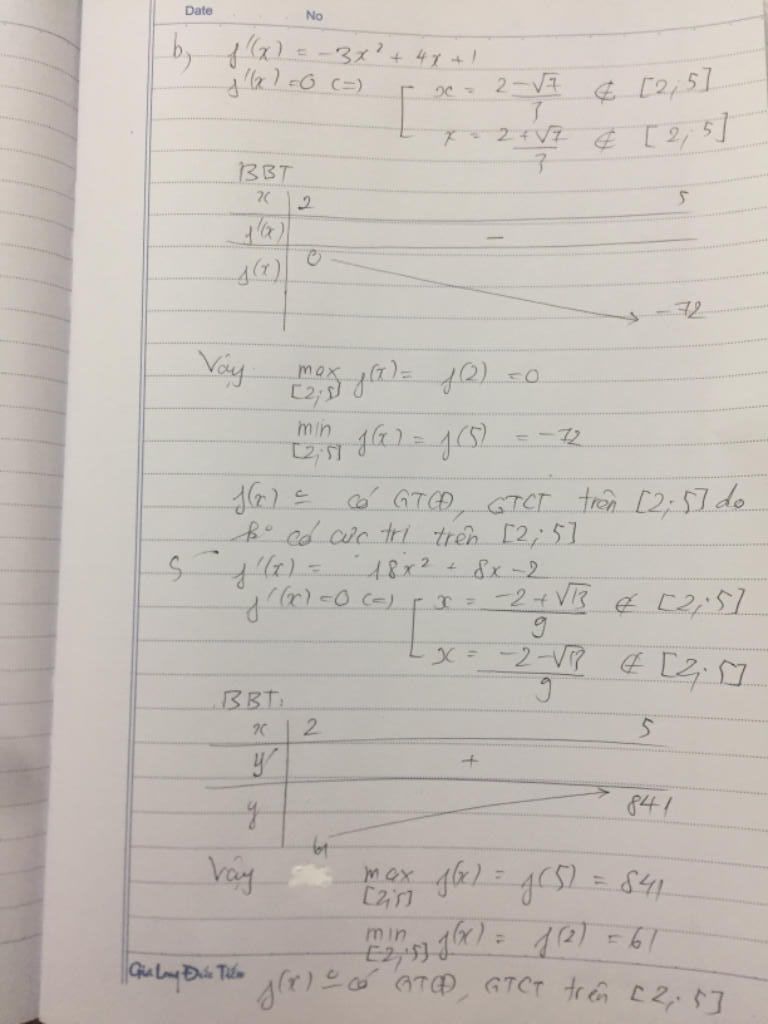 Date No
b, f'(x) = -3x² + 4x + 1
f'(x) = 0 (=) [ x = (2 - √7)/3 ∉ [2; 5]
x = (2 + √7)/3 ∉ [2; 5]
BBT
x 2 5
f'(x) -
f(x) 0 -72
Vậy max [2; 5] f(x) = f(2) = 0
min [2; 5] f(x) = f(5) = -72
f(x) có GTCĐ, GTCT trên [2; 5] do
k° có cực trị trên [2; 5]
f'(x) = 18x² + 8x - 2
f'(x) = 0 (=) [ x = (-2 + √13)/9 ∉ [2; 5]
x = (-2 - √13)/9 ∉ [2; 5]
BBT:
x 2 5
y' +
y 61 841
Vậy max [2; 5] f(x) = f(5) = 841
min [2; 5] f(x) = f(2) = 61
f(x) có GTCĐ, GTCT trên [2; 5]